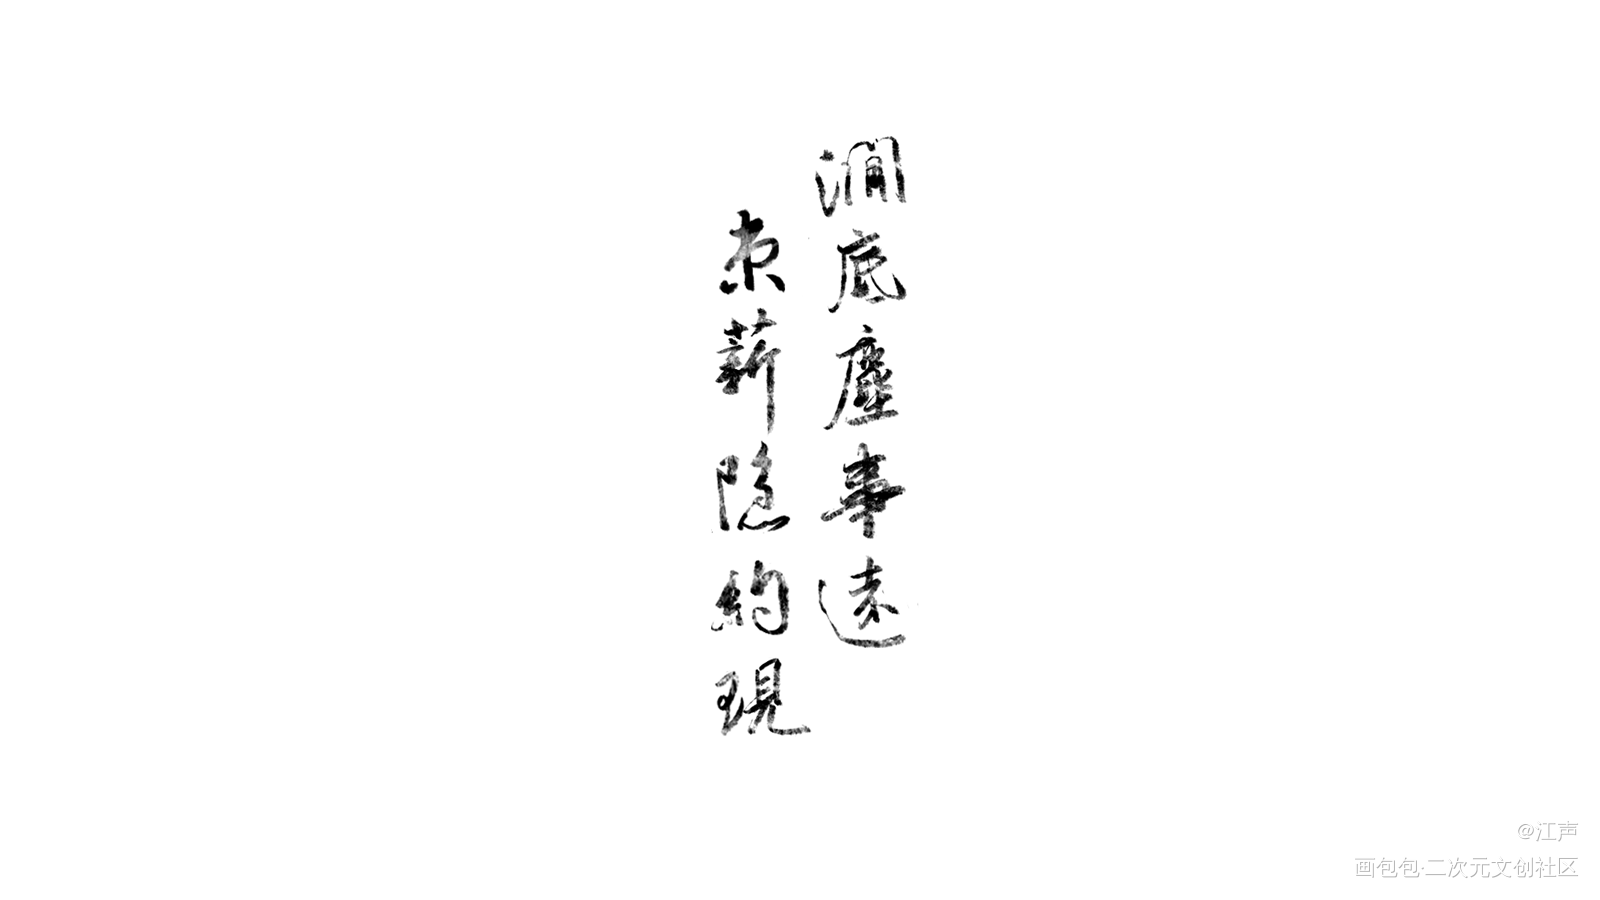 澗底塵事遠
束薪隐約現
@江声
画包包·二次元文创社区